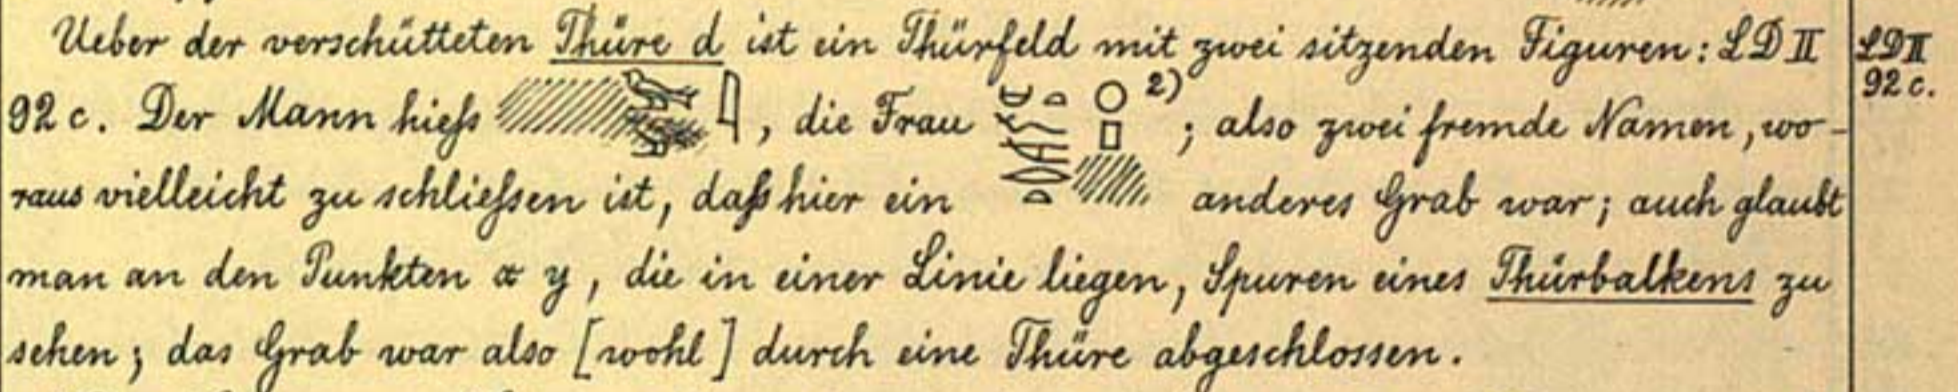 Ueber der verschütteten Thüre d ist ein Thürfeld mit zwei sitzenden Figuren: LD II
LD II
92 c. Der Mann hieſs , die Frau 2) ; also zwei fremde Namen, wo-
92 c.
raus vielleicht zu schlieſsen ist, daſs hier ein anderes Grab war; auch glaubt
man an den Punkten x y, die in einer Linie liegen, Spuren eines Thürbalkens zu
sehen; das Grab war also [wohl] durch eine Thüre abgeschlossen.